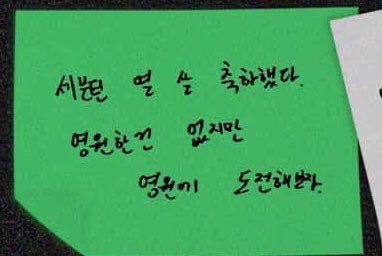 세븐틴 열 살 축하했다.
영원한 건 없지만
영원에 도전해보자.